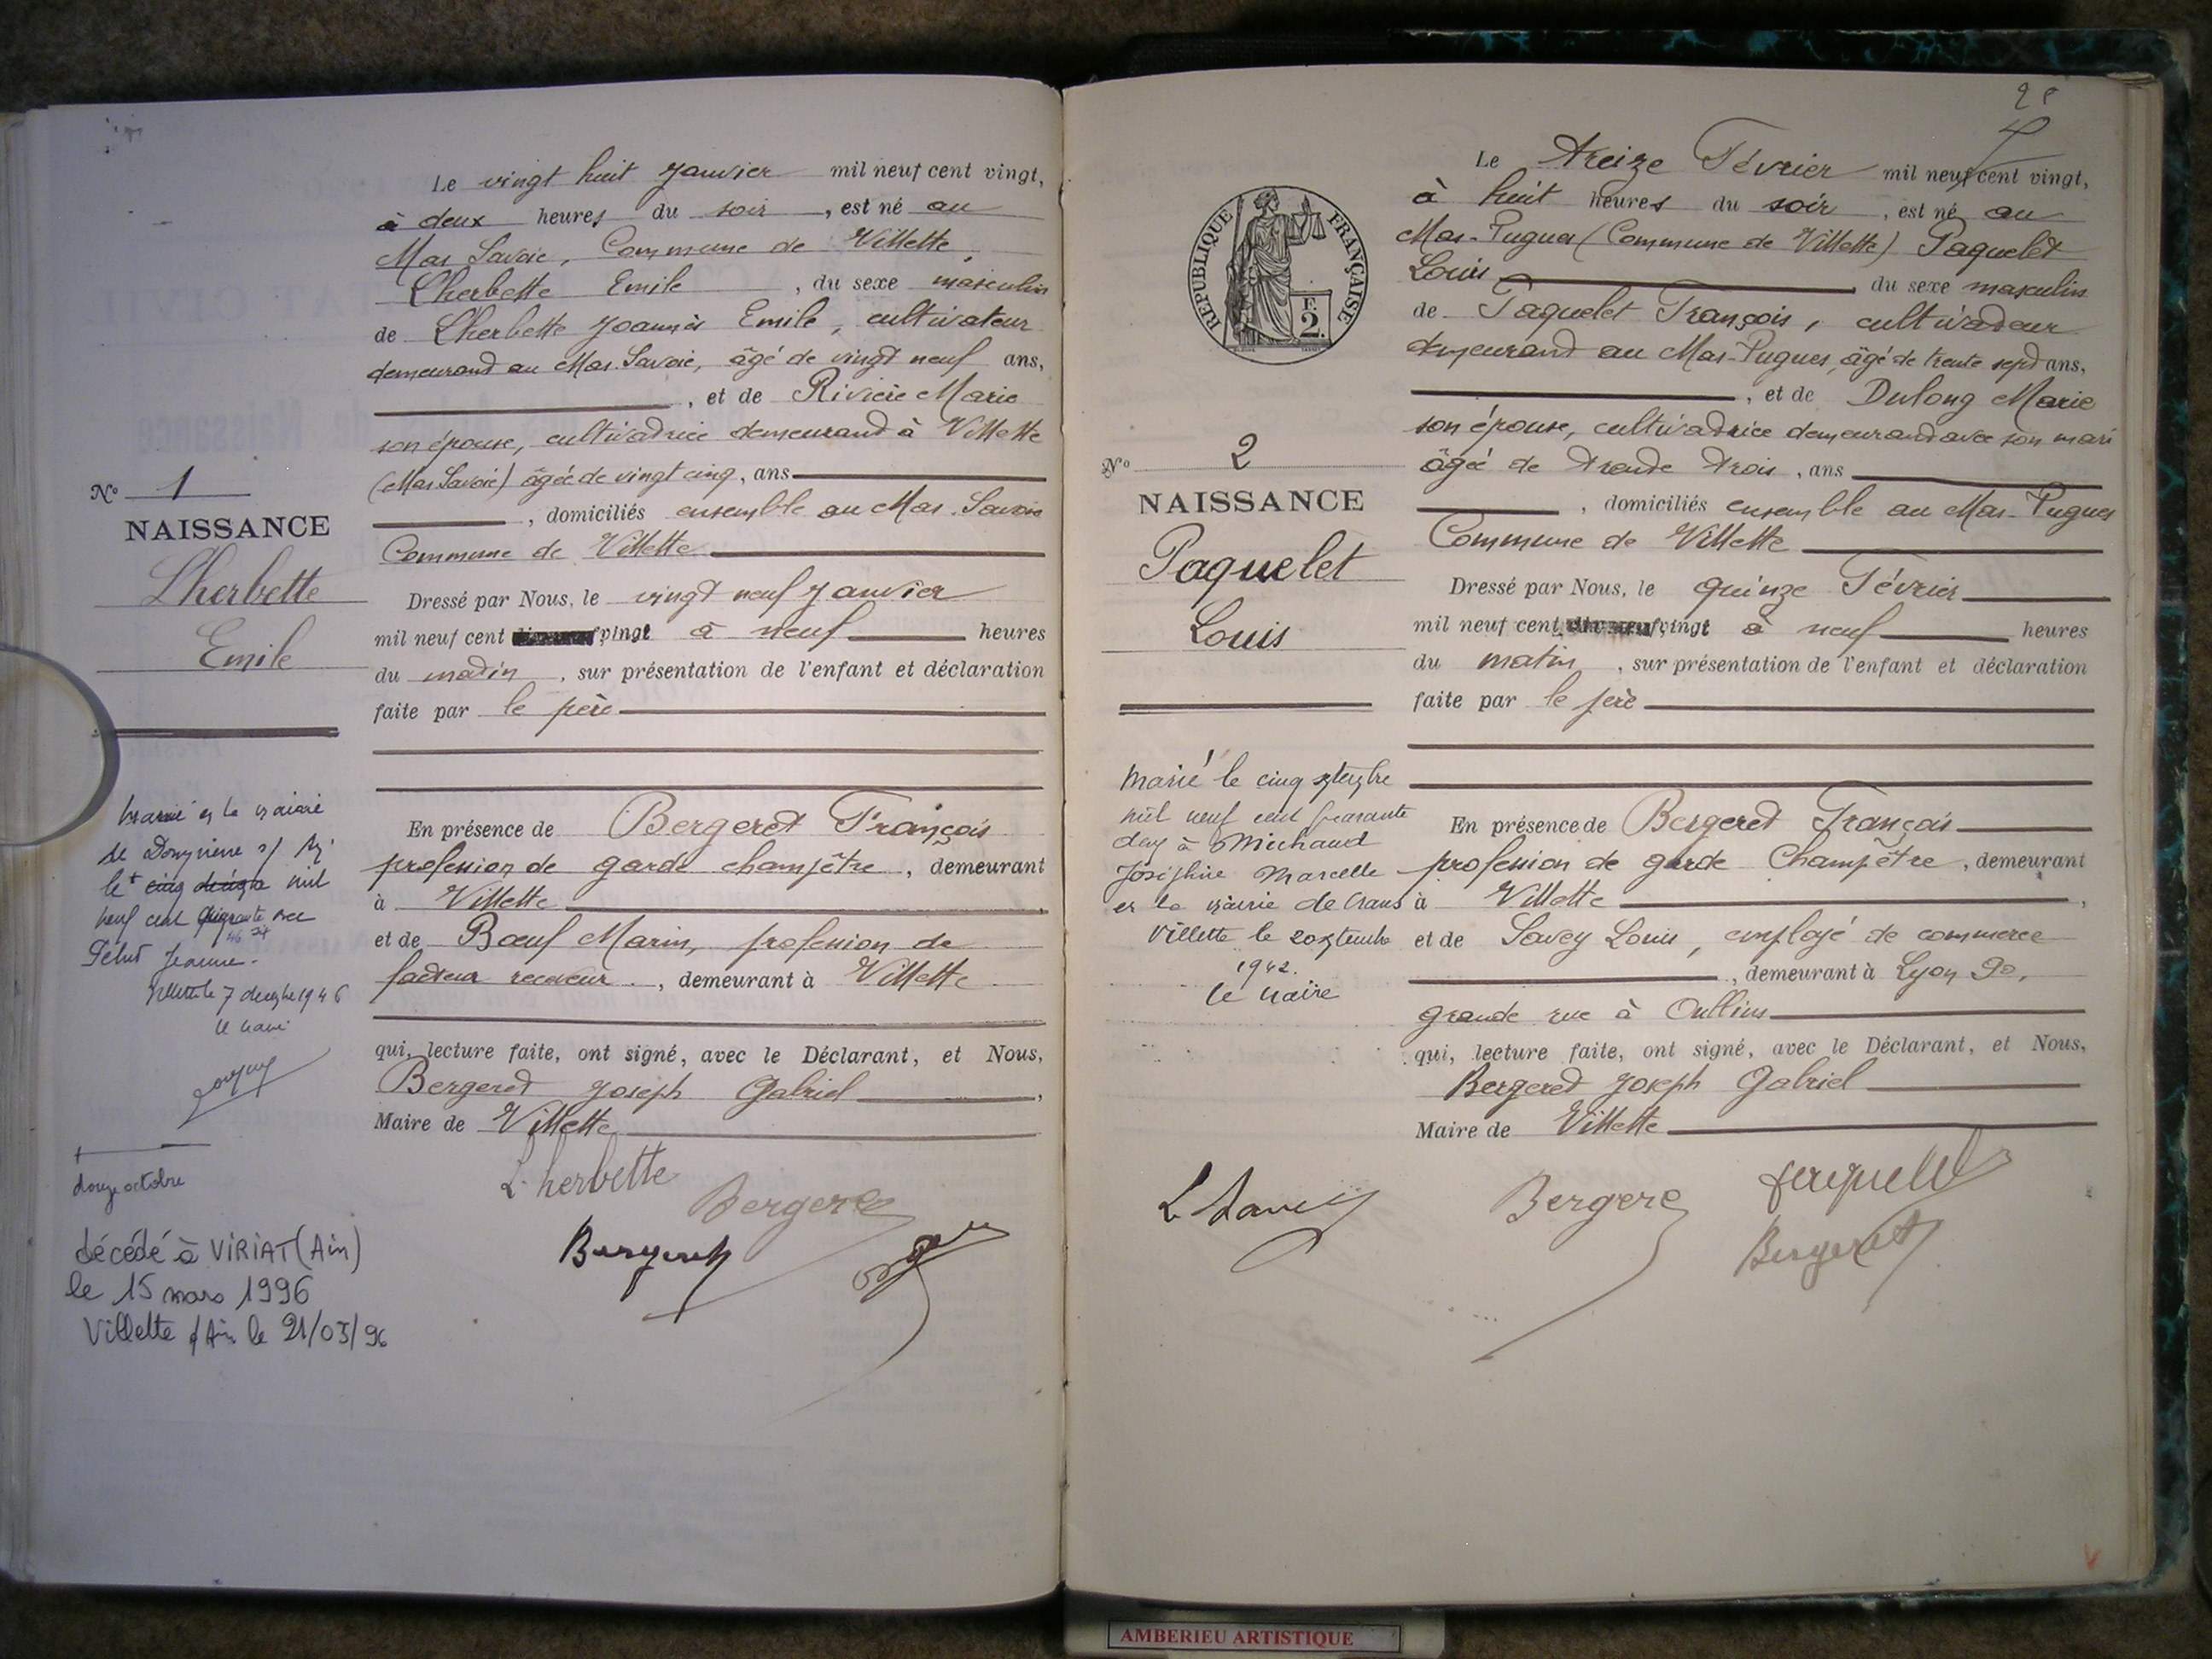 Le vingt huit Janvier mil neuf cent vingt,
à deux heures du soir, est né au
Mas Savoie, Commune de Villette,
Lherbette Emile, du sexe masculin
de Lherbette Joannès Emile, cultivateur
demeurand au Mas Savoie, âgé de vingt neuf ans,
, et de Rivière Marie
son épouse, cultivadrice demeurand à Villette
(Mas Savoie) âgée de vingt cinq, ans
, domiciliés ensemble au Mas Savoie
Commune de Villette
Dressé par Nous, le vingt neuf Janvier
mil neuf cent vingt à neuf heures
du matin, sur présentation de l'enfant et déclaration
faite par le père
En présence de Bergeret François
profession de garde champêtre, demeurant
à Villette,
et de Bœuf Marin, profession de
facteur receveur, demeurant à Villette
qui, lecture faite, ont signé, avec le Déclarant, et Nous,
Bergeret Joseph Gabriel,
Maire de Villette
L'herbette
Bergere
Bergeret
No 1
NAISSANCE
Lherbette
Emile
Marié en la mairie
de
le cinq mil
neuf cent avec
Jeanne.
Villette le 7 décembre 1946
le maire
douze octobre
décédé à VIRIAT (Ain)
le 15 mars 1996
Villette s/Ain le 21/03/96
2
Le treize Février mil neuf cent vingt,
à huit heures du soir, est né au
Mas-Pugues (Commune de Villette) Paquelet
Louis du sexe masculin
de Paquelet François, cultivadeur
demeurand au Mas-Pugues, âgé de trente sept ans,
, et de Dulong Marie
son épouse, cultivadrice demeurand avec son mari
âgée de trente trois, ans
, domiciliés ensemble au Mas-Pugues
Commune de Villette
Dressé par Nous, le quinze Février
mil neuf cent vingt à neuf heures
du matin, sur présentation de l'enfant et déclaration
faite par le père
En présence de Bergeret François
profession de garde Champêtre, demeurant
à Villette,
et de Savey Louis, employé de commerce
, demeurant à Lyon 90,
grande rue à Oullins
qui, lecture faite, ont signé, avec le Déclarant, et Nous,
Bergeret Joseph Gabriel
Maire de Villette
Bergere
Bergeret
RÉPUBLIQUE FRANÇAISE
2 F.
No 2
NAISSANCE
Paquelet
Louis
Marié le cinq septembre
mil neuf cent quarante
deux à Michaud
Joséphine Marcelle
en la mairie de Crans
Villette le 20 septembre
1942.
le maire
AMBERIEU ARTISTIQUE